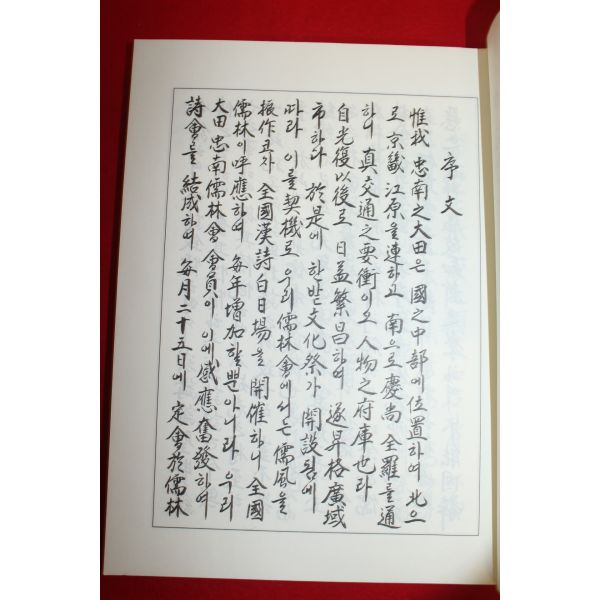 序文
惟我 忠南之大田은 國之中部에 位置하여 北으
로 京畿 江原을 連하고 南으로 慶尙 全羅를 通
하니 眞交通之要衝이오 人物之府庫也라
自光復以後로 日益繁昌하여 遂昇格廣域
市하다 於是에 한밭文化祭가 開設됨에
따라 이를 契機로 우리 儒林會에서는 儒風을
振作코자 全國漢詩白日場을 開催하니 全國
儒林이 呼應하여 每年增加할뿐아니라 우리
大田 忠南儒林會 會員이 이에 感應奮發하여
詩會를 結成하여 每月二十五日에 定會於儒林